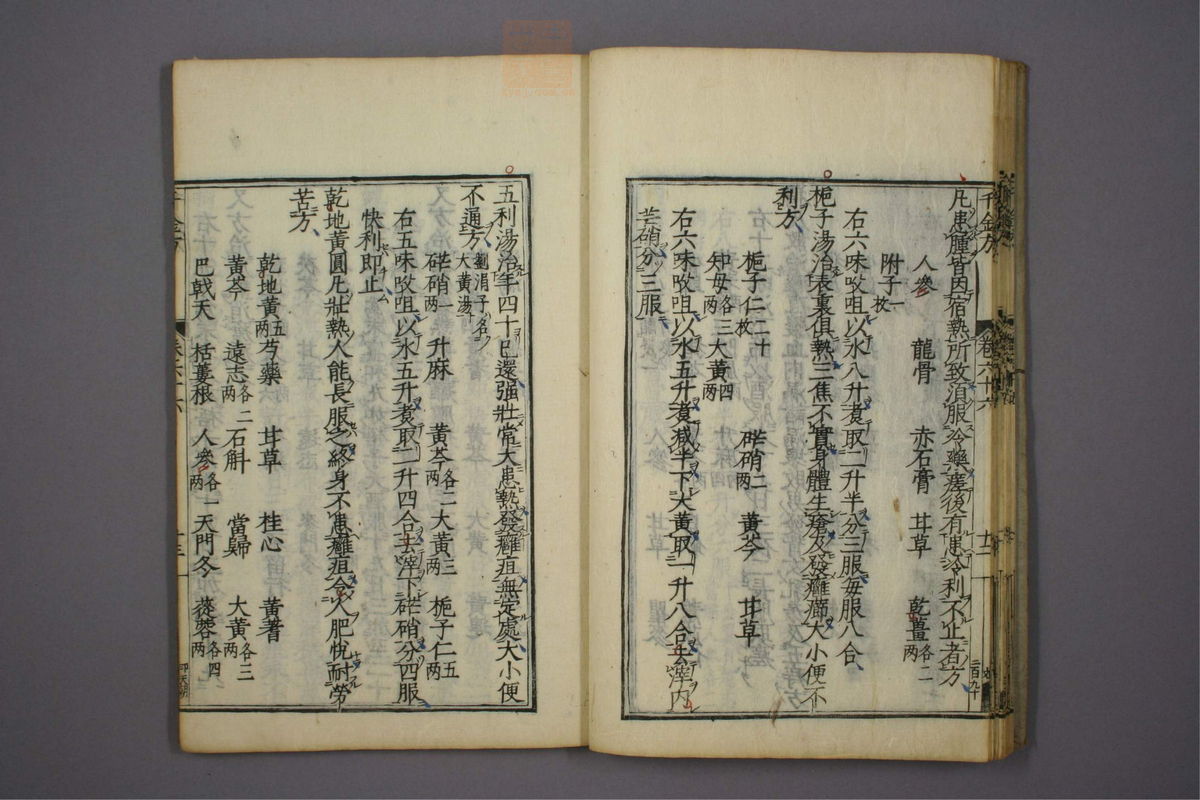 千金方
卷六十六
十二
凡患腫皆因宿熱所致須服冷藥瘥後有患冷利不止者方
人參 龍骨 赤石膏 甘草 乾薑各二两
附子一枚
右六味㕮咀以水八升煮取二升半分三服每服八合
梔子湯治表裏俱熱三焦不實身體生瘡及發癰癤大小便不
利方
梔子仁二十枚 硭硝二两 黃芩 甘草
知母各三两 大黃四两
右六味㕮咀以水五升煮減半下大黃取一升八合去滓內
芒硝分三服
五利湯治年四十已還强壯常大患熱發癰疽無定處大小便
不通方劉涓子名大黃湯
硭硝一两 升麻 黃芩各二两 大黃三两 梔子仁五两
右五味㕮咀以水五升煮取二升四合去滓下硭硝分四服
快利即止
乾地黃圓凡壯熱人能長服之終身不患癰疽令人肥悅耐勞
苦方
乾地黃五两 芍藥 甘草 桂心 黃蓍
黃芩 遠志各二两 石斛 當歸 大黃各三两
巴戟天 栝蔞根 人參各一两 天門冬 蓯蓉各四两
千金方
卷六十六
十三